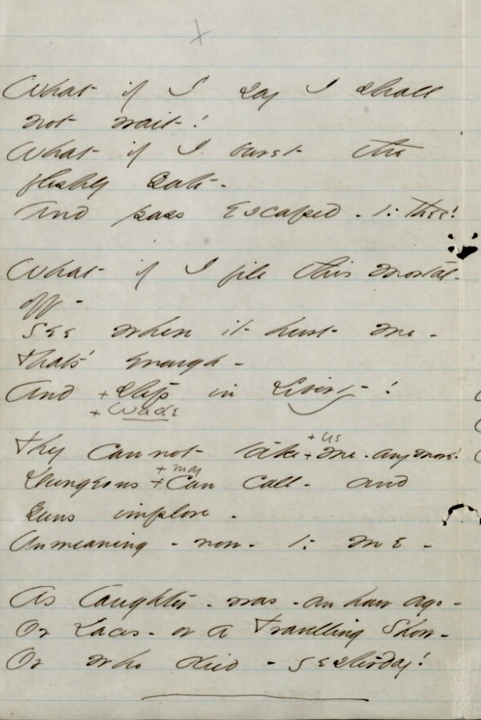 What if I say I shall
not wait!
What if I burst the
fleshly Gate -
And pass Escaped - to thee!
What if I file this mortal -
off -
See where it hurt me -
That's enough -
And + step in Liberty!
+ Wade
+ us
They cannot take + me - any more!
+ may
Dungeons + can call - and
Guns implore -
Unmeaning - now - to me -
As laughter - was - an hour ago -
Or Laces - or a Travelling Show -
Or who died - yesterday!